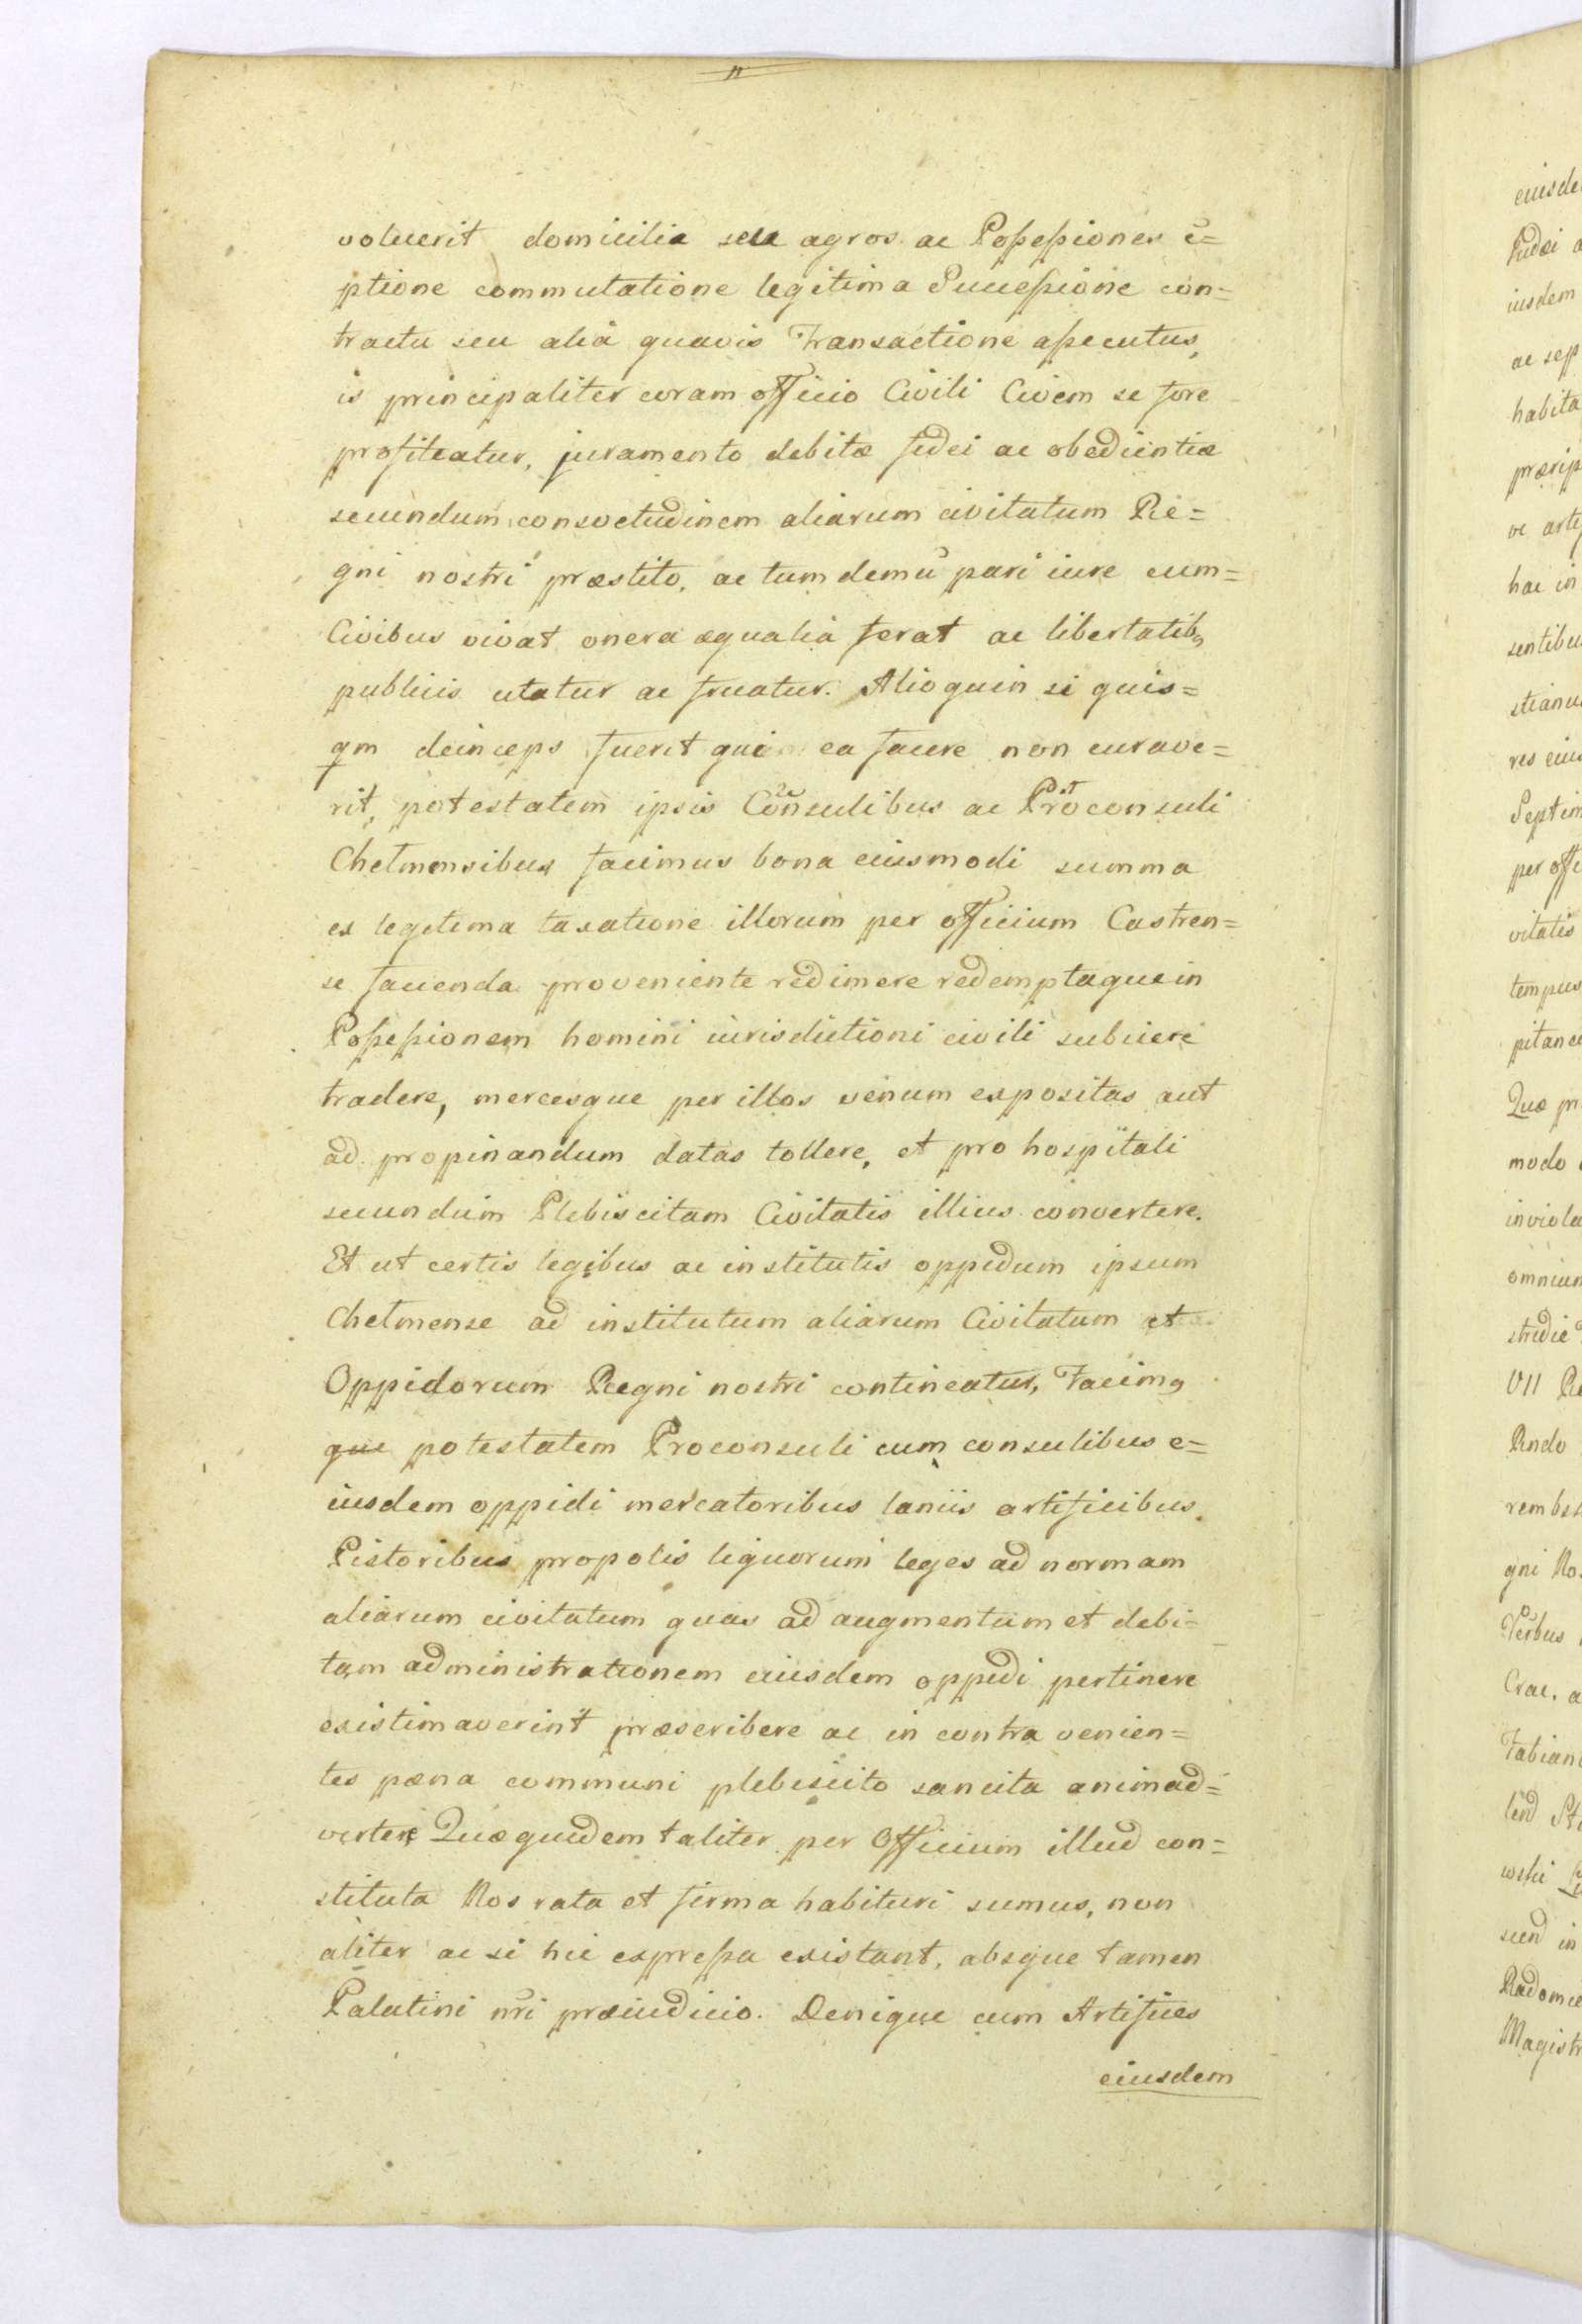 "
voluerit domicilia seu agros ac Poſseſsiones ē=
ptione commutatione legitima Succeſsione con=
tractu seu alia quavis Transactione aſsecutus,
is principaliter coram officio Civili Civem se fore
profiteatur, juramento debitæ fidei ac obedientiæ
secundum consvetudinem aliarum civitatum Re=
gni nostri præstito, ac tum demū pari iure cum=
Civibus vivat onera æqualia ferat ac libertatibꝫ
publicis utatur ac fruatur. Alioquin si quis=
qm deinceps fuerit qui ea facere non curave=
rit, potestatem ipsis Consulibus ac Proconsuli
Chelmensibus facimus bona eiusmodi summa
ex legitima taxatione illorum per officium Castren=
se facienda proveniente redimere redemptaque in
Poſseſsionem homini iurisdictioni civili subiicere
tradere, mercesque per illos venum expositas aut
ad propinandum datas tollere, et pro hospitali
secundum Plebiscitam Civitatis illius convertere.
Et ut certis legibus ac institutis oppidum ipsum
Chelmense ad institutum aliarum Civitatum et
Oppidorum Regni nostri contineatur, Facimꝫ
que potestatem Proconsuli cum consulibus e=
iusdem oppidi mercatoribus laniis artificibus
Pistoribus propolis liquorum leges ad normam
aliarum civitatum quas ad augmentum et debi=
tam administrationem eiusdem oppidi pertinere
existimaverint præscribere ac in contra venien=
tes pæna communi plebiscito sancita animad=
vertere Quæquidem taliter per Officium illud con=
stituta Nos rata et firma habituri sumus, non
aliter ac si hic expreſsa existant, absque tamen
Palatini nr̄i præiudicio. Denique cum Artifices
eiusdem